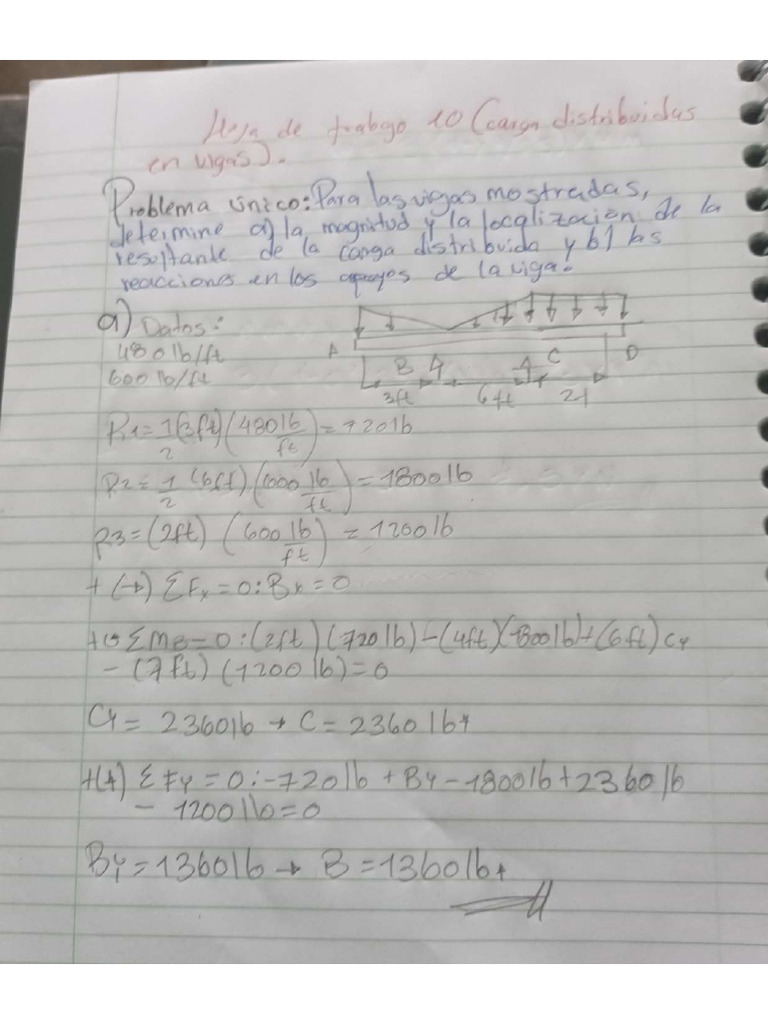 Hoja de trabajo 10 (carga distribuidas
en vigas).
Problema único: Para las vigas mostradas,
determine a) la magnitud y la localización de la
resultante de la carga distribuida y b) las
reacciones en los apoyos de la viga.
a) Datos:
480 lb/ft
600 lb/ft
A B C D
3ft 6ft 2f
R1 = 1/2 (3ft) (480 lb/ft) = 720 lb
R2 = 1/2 (6ft) (600 lb/ft) = 1800 lb
R3 = (2ft) (600 lb/ft) = 1200 lb
+ (→) ΣFx = 0: Bx = 0
+↺ ΣMB = 0: (2ft) (720 lb) - (4ft) (1800 lb) + (6ft) Cy
- (7ft) (1200 lb) = 0
Cy = 2360 lb → C = 2360 lb↑
+(↑) ΣFy = 0: -720 lb + By - 1800 lb + 2360 lb
- 1200 lb = 0
By = 1360 lb → B = 1360 lb↑